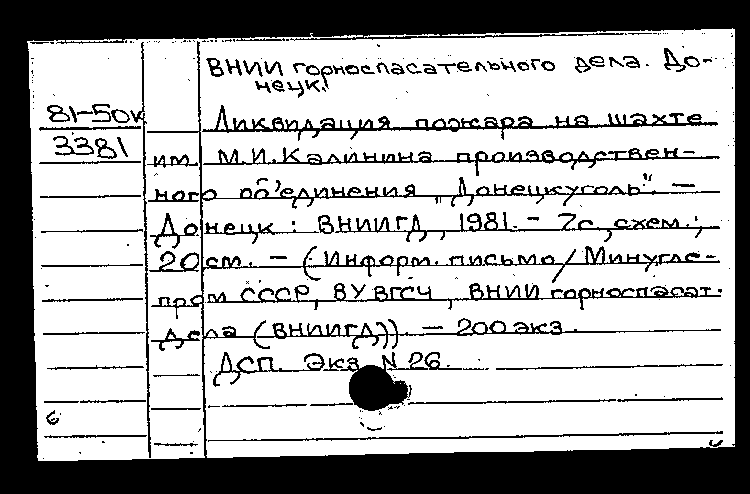 ВНИИ горноспасательного дела. До-
нецк.
81-50к
3381
Ликвидация пожара на шахте
им. М.И.Калинина производствен-
ного об'единения „Донецкуголь". —
Донецк : ВНИИГД, 1981. - 7с., схем.;
20 см. — (Информ. письмо / Минугле-
пром СССР, ВУ ВГСЧ, ВНИИ горноспасат.
дела (ВНИИГД)). — 200 экз.
ДСП. Экз N 26.
6